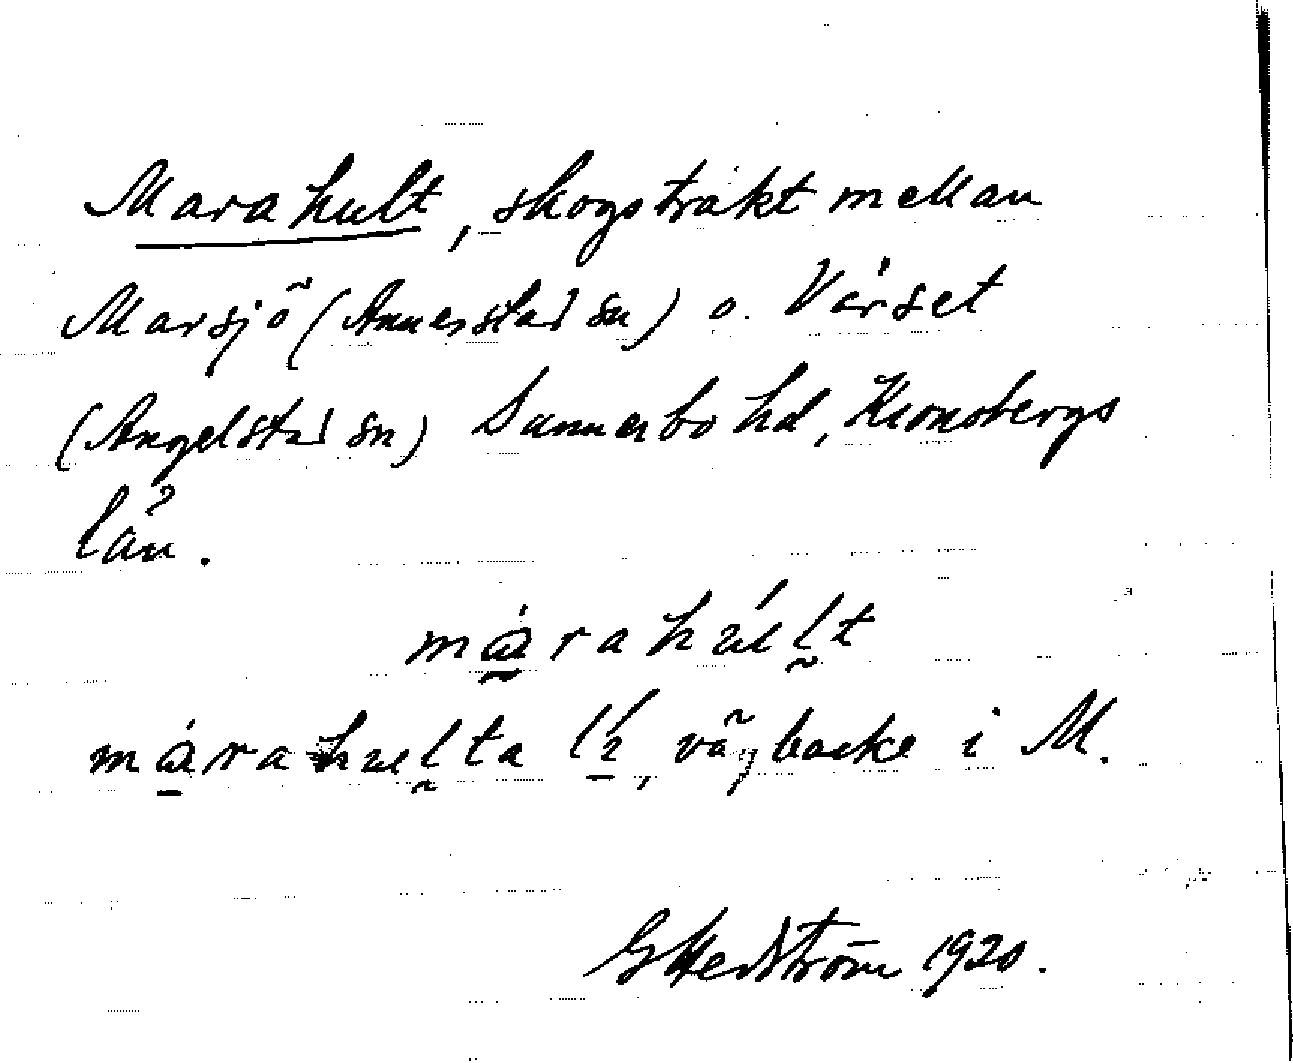 Marahult, skogstrakt mellan
Marsjö (Annerstad sn) o. Vårset
(Angelstad sn) Sunnerbo hd, Kronobergs
län.
márahúlt
márahulta lí, vägbacke i M.
GHedström 1920.